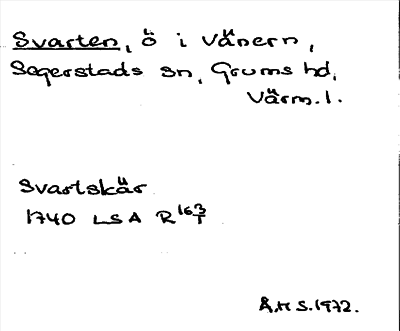 Svarten, ö i Vänern,
Segerstads sn, Grums hd,
Värm. l.
Svartskär
1740 LSA R 163/1
Å.H S. 1972.